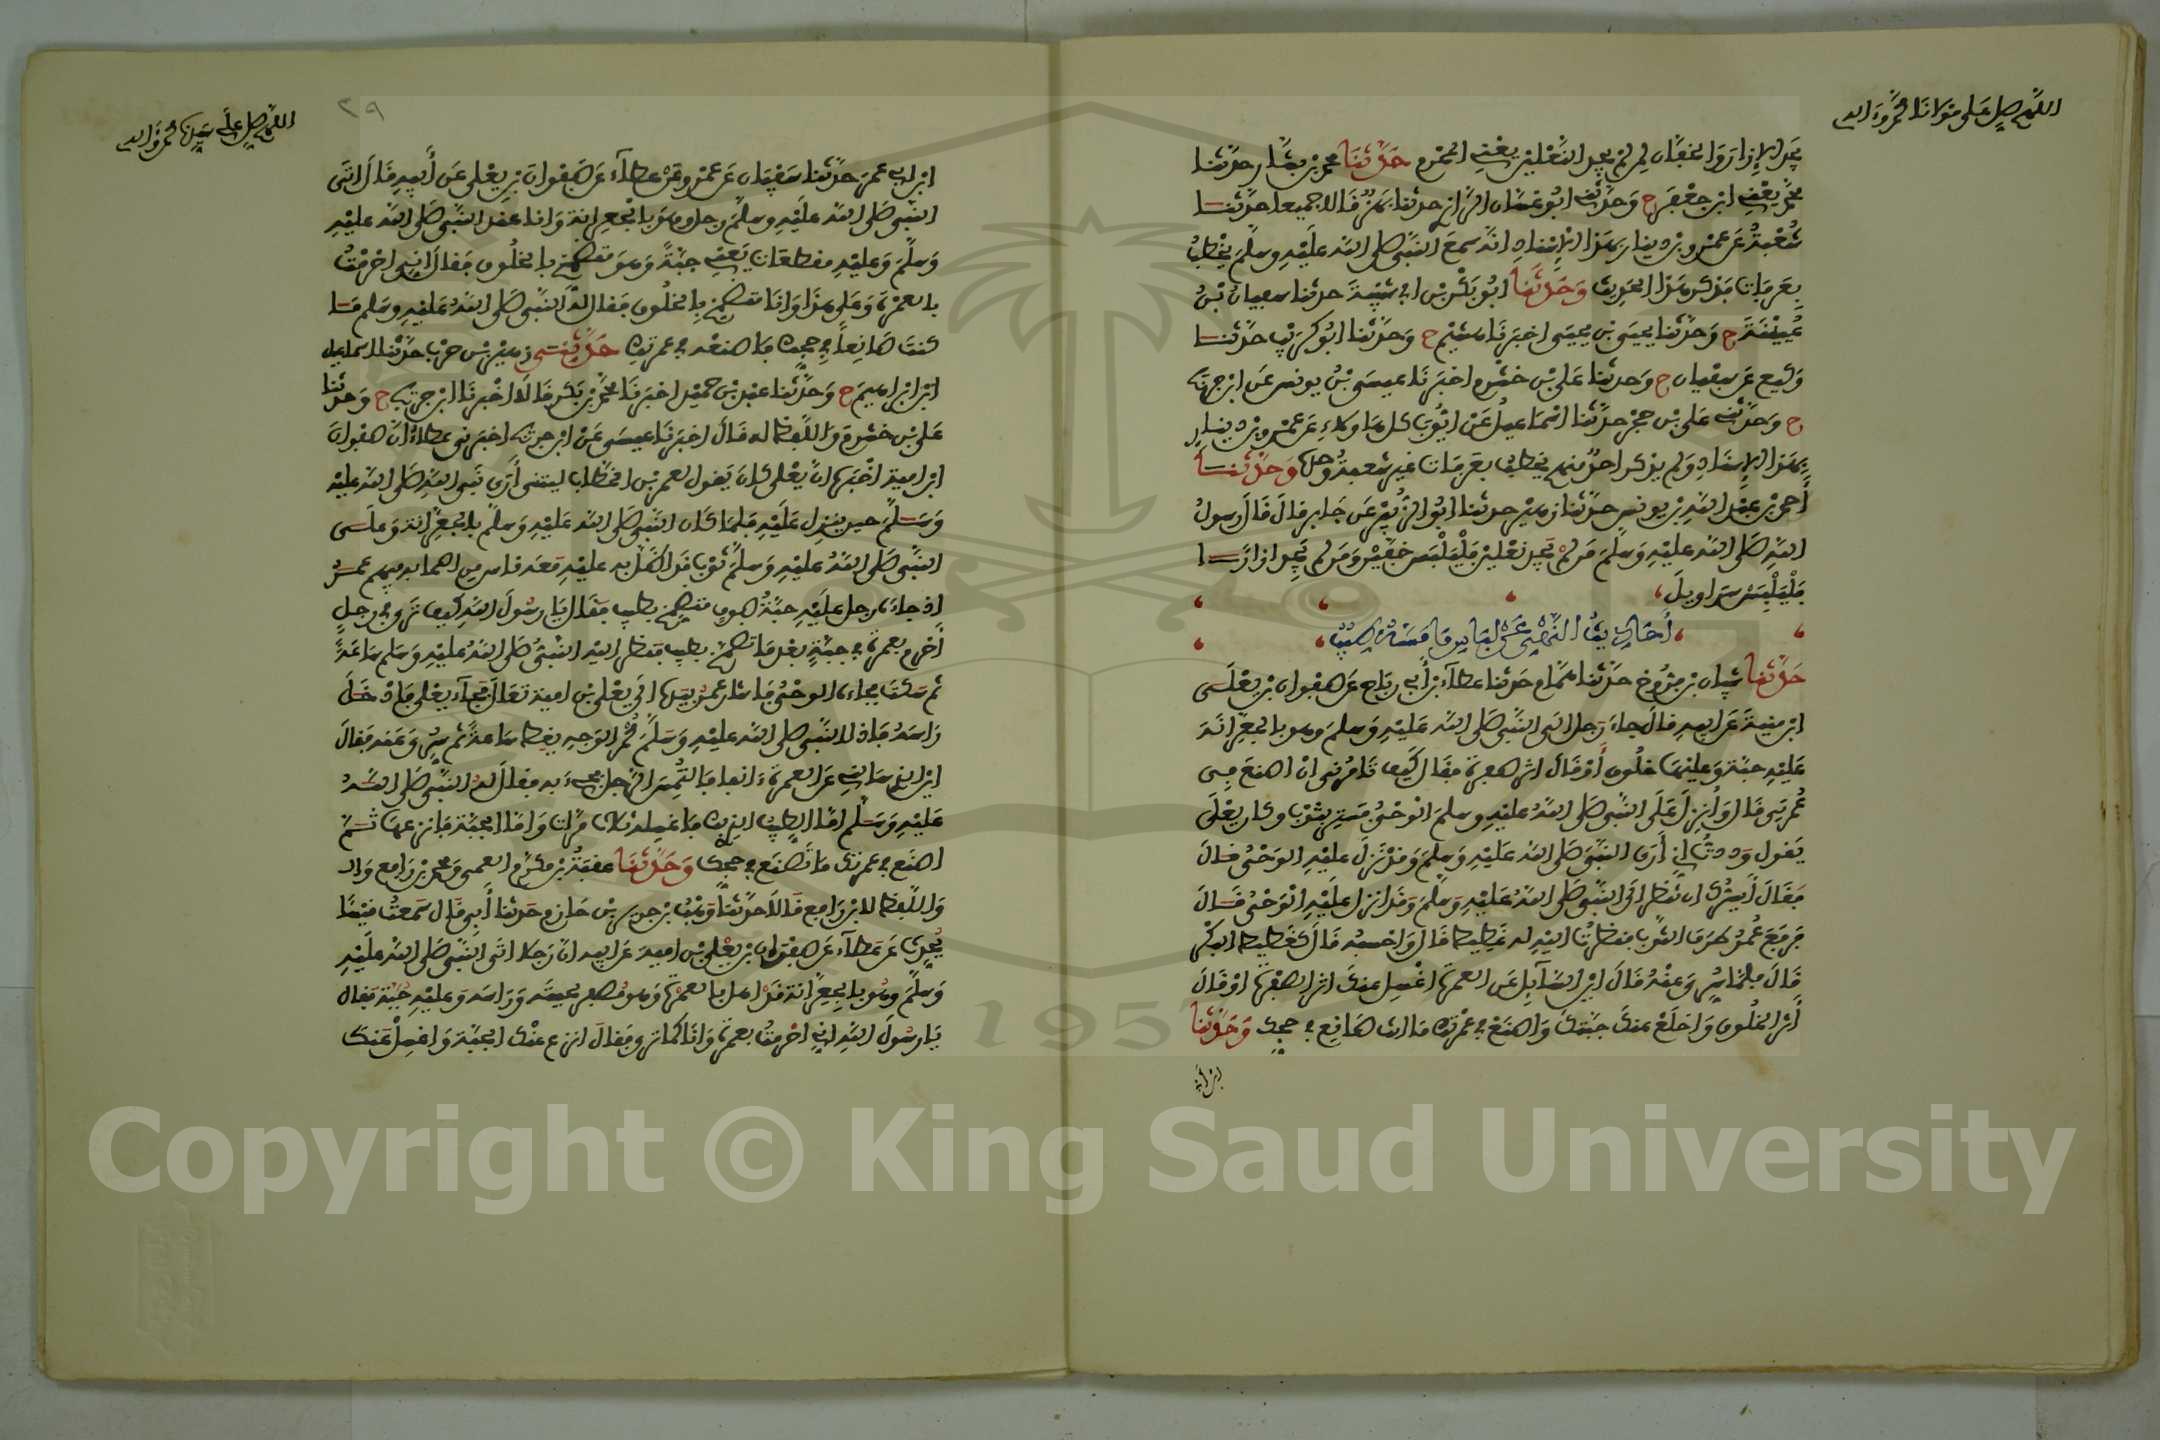 اللهم صل على مولانا محمد وءاله
يجد الإزار والخفان لمن لم يجد النعلين يعني المحرم حدثنا محمد بن بشار حدثنا
محمد يعني ابن جعفر ح وحدثني ابو غسان الرازي حدثنا بهز قالا جميعا حدثنا
شعبة عن عمرو بن دينار بهذا الإسناد انه سمع النبي صلى الله عليه وسلم يخطب
بعرفات فذكر هذا الحديث وحدثنا ابو بكر بن ابي شيبة حدثنا سفيان بن
عيينة ح وحدثنا يحيى بن يحيى اخبرنا هشيم ح وحدثنا ابو كريب حدثنا
وكيع عن سفيان ح وحدثنا علي بن خشرم اخبرنا عيسى بن يونس عن ابن جريج
ح وحدثني علي بن حجر حدثنا اسماعيل عن ايوب كل هاولاء عن عمرو بن دينار
بهذا الإسناد ولم يذكر احد منهم يخطب بعرفات غير شعبة وحده وحدثنا
أحمد بن عبد الله بن يونس حدثنا زهير حدثنا ابو الزبير عن جابر قال قال رسول
الله صلى الله عليه وسلم من لم يجد نعلين فليلبس خفين ومن لم يجد ازارا
فليلبس سراويل
أحاديث النهي عن لباس ما مسه طيب
حدثنا شيبان بن فروخ حدثنا همام حدثنا عطاء بن أبي رباح عن صفوان بن يعلى
ابن منية عن ابيه قال جاء رجل الى النبي صلى الله عليه وسلم وهو بالجعرانة
عليه جبة وعليها خلوق أو قال اثر صفرة فقال كيف تامرني ان اصنع في
عمرتي قال وأنزل على النبي صلى الله عليه وسلم الوحي فستر بثوب وكان يعلى
يقول وددت اني أرى النبي صلى الله عليه وسلم وقد نزل عليه الوحي قال
فقال أيسرك ان تنظر الى النبي صلى الله عليه وسلم وقد انزل عليه الوحي قال
فرفع عمر طرف الثوب فنظرت اليه له غطيط قال واحسبه قال كغطيط البكر
قال فلما سري عنه قال اين السايل عن العمرة اغسل عنك اثر الصفرة او قال
أثر الخلوق واخلع عنك جبتك واصنع في عمرتك ما انت صانع في حجك وحدثنا
ابن أبي
اللهم صل على سيدنا محمد وءاله
٢٩
ابن ابي عمر حدثنا سفيان عن عمرو عن عطاء عن صفوان بن يعلى عن أبيه قال اتى
النبي صلى الله عليه وسلم رجل وهو بالجعرانة وانا عند النبي صلى الله عليه
وسلم وعليه مقطعات يعني جبة وهو متضمخ بالخلوق فقال اني احرمت
بالعمرة وعلي هذا وانا متضمخ بالخلوق فقال له النبي صلى الله عليه وسلم ما
كنت صانعا في حجك فاصنعه في عمرتك حدثني زهير بن حرب حدثنا اسماعيل
ابن ابراهيم ح وحدثنا عبد بن حميد اخبرنا محمد بن بكر قالا اخبرنا ابن جريج ح وحدثنا
علي بن خشرم واللفظ له قال اخبرنا عيسى عن ابن جريج اخبرني عطاء ان صفوان
ابن امية اخبره ان يعلى كان يقول لعمر بن الخطاب ليتني أرى نبي الله صلى الله عليه
وسلم حين ينزل عليه فلما كان النبي صلى الله عليه وسلم بالجعرانة وعلى
النبي صلى الله عليه وسلم ثوب قد اظل به عليه معه ناس من اصحابه فيهم عمر
إذ جاءه رجل عليه جبة صوف متضمخ بطيب فقال يا رسول الله كيف ترى في رجل
أحرم بعمرة في جبة بعد ما تضمخ بطيب فنظر اليه النبي صلى الله عليه وسلم ساعة
ثم سكت فجاءه الوحي فاشار عمر بيده الى يعلى بن امية تعال فجاء يعلى فادخل
راسه فاذا النبي صلى الله عليه وسلم محمر الوجه يغط ساعة ثم سري عنه فقال
اين الذي سالني عن العمرة ءانفا فالتمس الرجل فجيء به فقال له النبي صلى الله
عليه وسلم اما الطيب الذي بك فاغسله ثلاث مرات واما الجبة فانزعها ثم
اصنع في عمرتك ما تصنع في حجك وحدثنا عقبة بن مكرم العمي ومحمد بن رافع وال
واللفظ لابن رافع قالا حدثنا وهب بن جرير بن حازم حدثنا أبي قال سمعت قيسا
يحدث عن عطاء عن صفوان بن يعلى بن امية عن ابيه ان رجلا اتى النبي صلى الله عليه
وسلم وهو بالجعرانة قد اهل بالعمرة وهو مصفر لحيته وراسه وعليه جبة فقال
يا رسول الله اني احرمت بعمرة وانا كما ترى فقال انزع عنك الجبة واغسل عنك
Copyright © King Saud University
1957